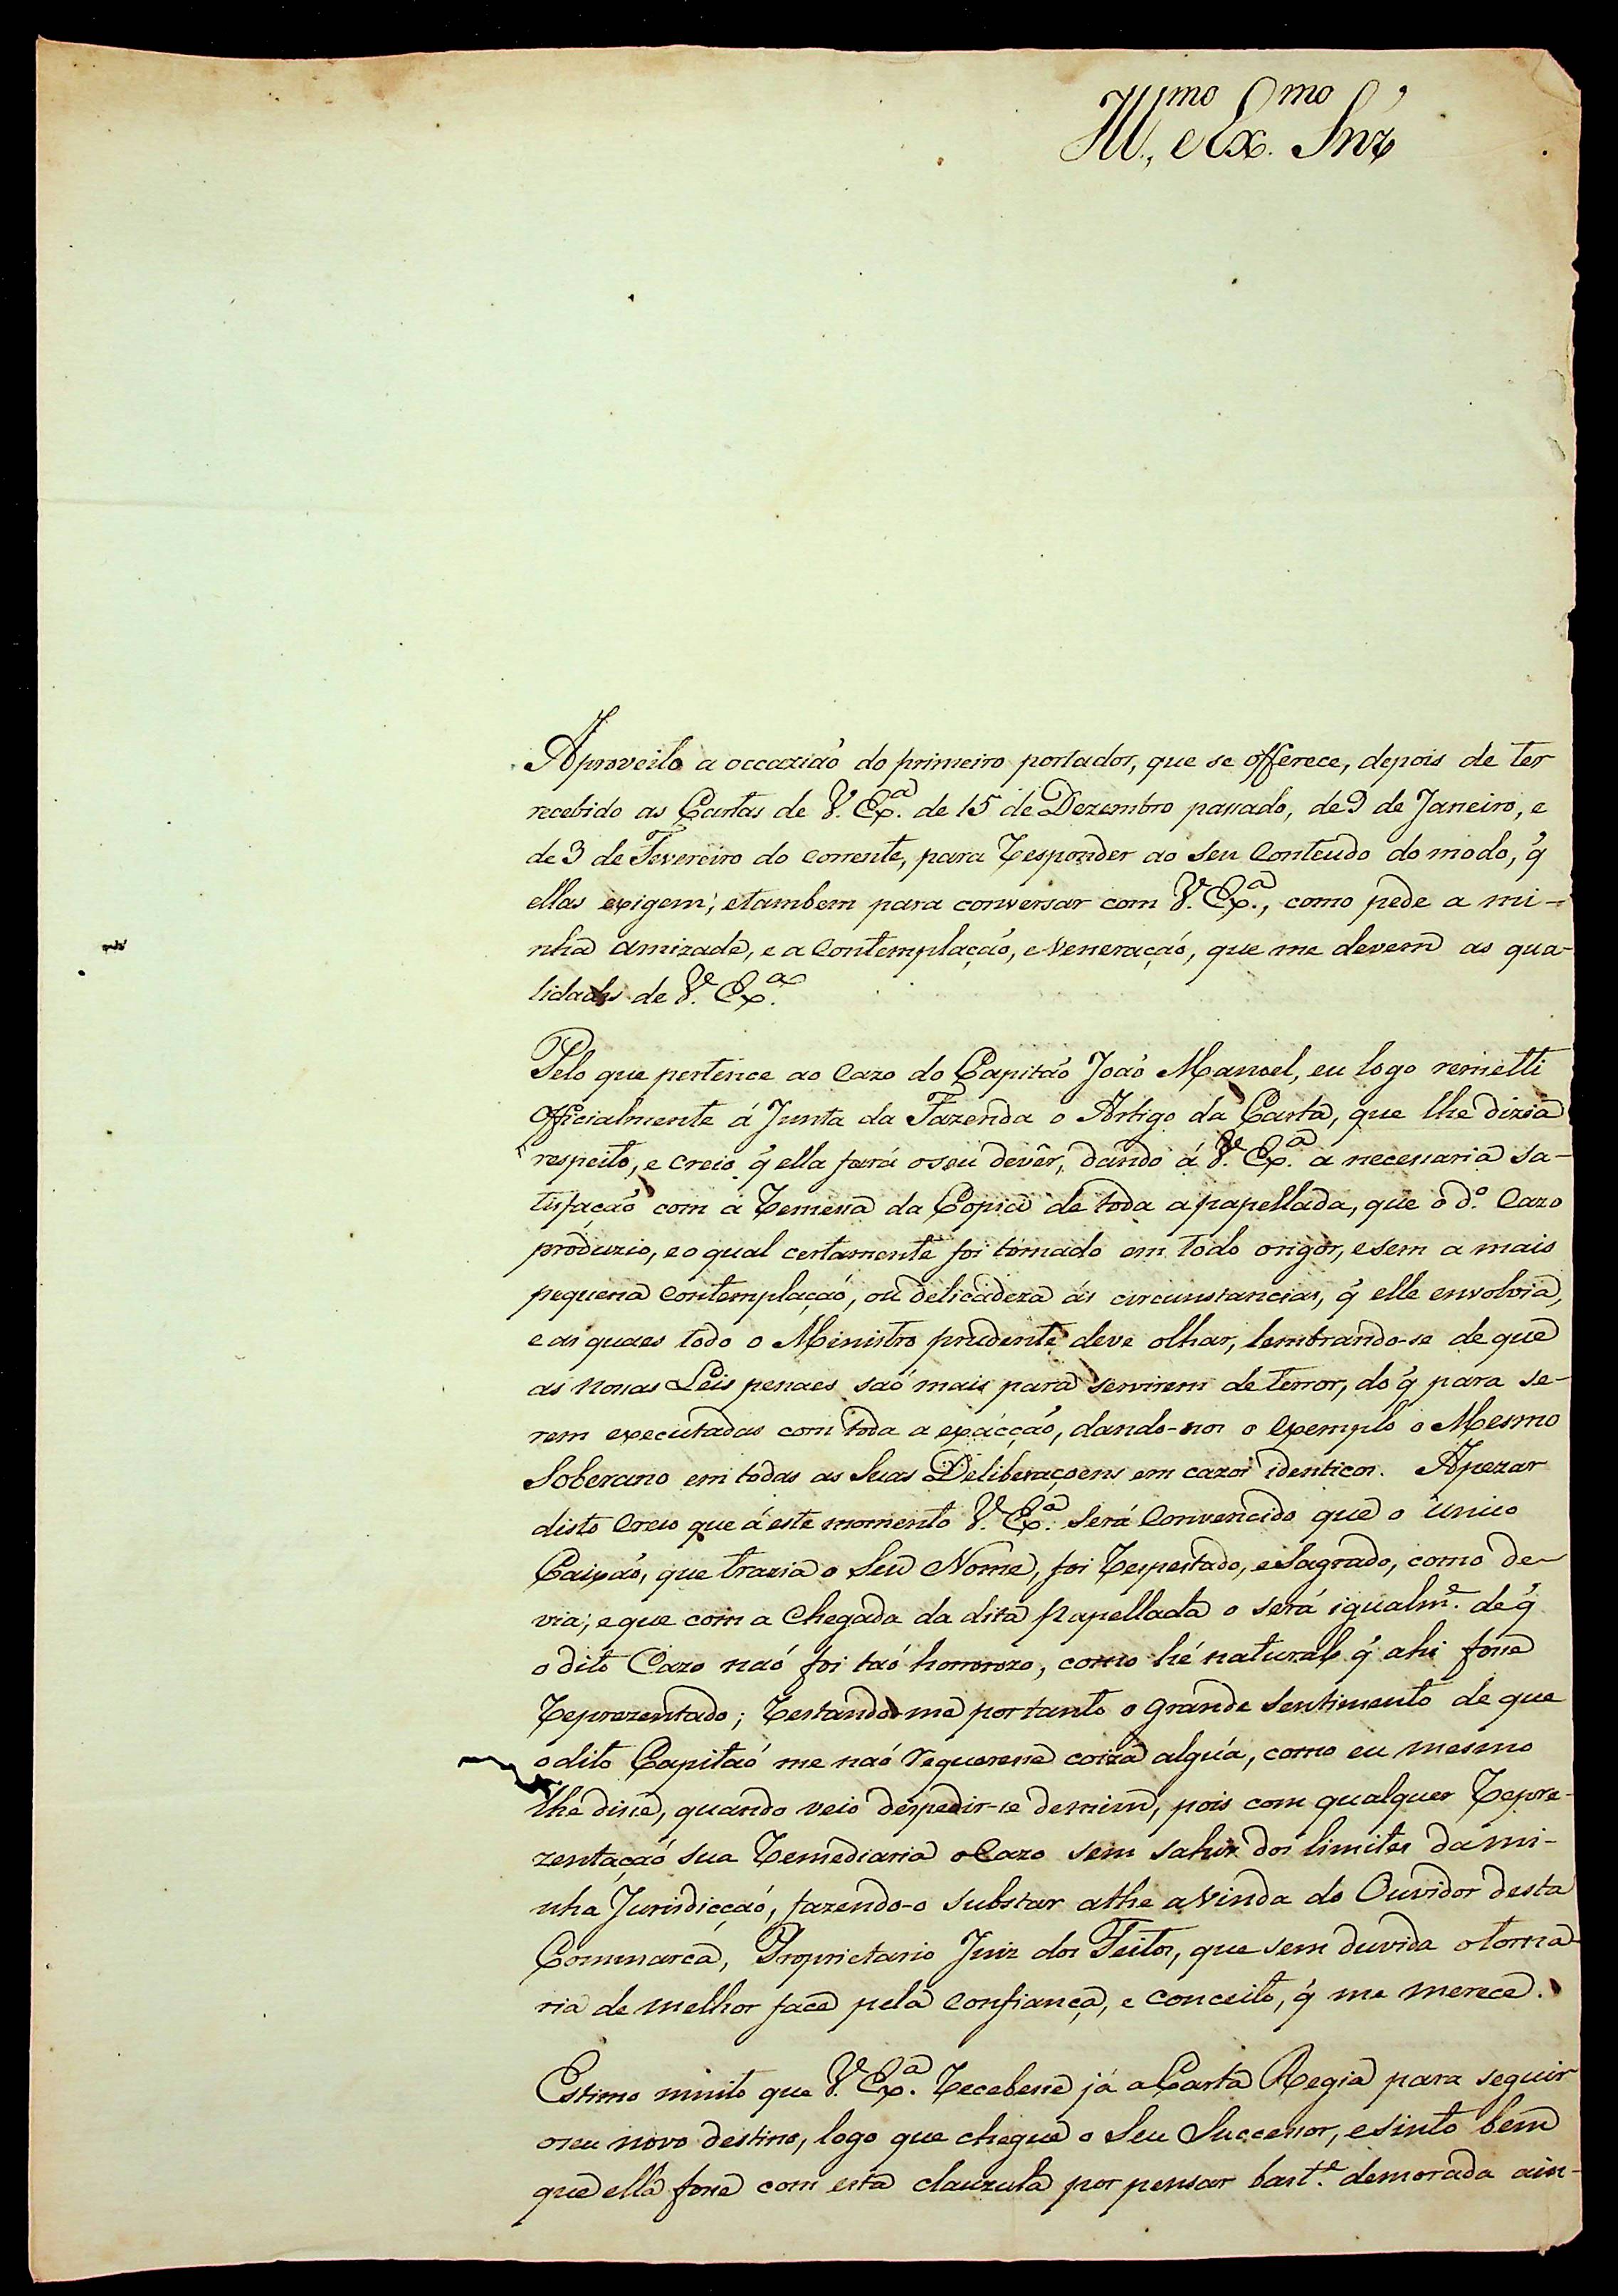 Ill.mo e Ex.mo Snr'
Aproveito a occazião do primeiro portador, que se offerece, depois de ter
recebido as Cartas de V. Ex.a de 15 de Dezembro passado, de 9 de Janeiro, e
de 3 de Fevereiro do corrente, para Responder ao Seu Conteudo do modo, q̃
ellas exigem; etambem para conversar com V. Ex.a, como pede a mi-
nha amizade, e a Contemplação, e Veneração, que me devem as qua-
lidades de V. Ex.a
Pelo que pertence ao Cazo do Capitão João Manoel, eu logo remetti
Officialmente á Junta da Fazenda o Artigo da Carta, que lhe dizia
respeito, e Creio q̃ ella fará oseu devêr, dando á V. Ex.a a necessaria sa-
tisfação com a Remessa da Copia de toda apapellada, que o d.o Cazo
produzio, e o qual certamente foi tomado em todo origor, esem a mais
pequena Contemplação, ou delicadeza ás circunstancias, q̃ elle envolvia,
e as quaes todo o Ministro prudente deve olhar, lembrando-se de que
as nossas Leis penaes saõ mais para servirem de terror, do q̃ para se-
rem executadas com toda a exacção, dando-nos o exemplo o Mesmo
Soberano em todas as Suas Deliberaçoens em cazos identicos. Apezar
disto Creio que á este momento V. Ex.a Será Convencido que o unico
Caixão, que trazia o Seu Nome, foi Respeitado, e Sagrado, como de-
via; e que com a Chegada da dita Papellada o será igualm.e de q̃
o dito Cazo naõ foi taõ horrorozo, como hé natural q̃ ahi fosse
Reprezentado; Restando-me portanto o grande Sentimento de que
o dito Capitaõ me naõ requeresse coiza algũa, como eu mesmo
lhe disse, quando veio despedir-se demim, pois com qualquer Repre-
zentaçaõ sua Remediaria o Cazo sem sahir dos limites da mi-
nha Jurisdicçaõ, fazendo-o substar athe a vinda do Ouvidor desta
Commarca, Proprietario Juiz dos Feitos, que sem duvida o torna-
ria de melhor face pela Confiança, e Conceito, q̃ me merece.
Estimo muito que V. Ex.a Recebesse já a Carta Regia para seguir
oseu novo destino, logo que chegue o Seu Successor, esinto bem
que ella fosse com esta clauzula por pensar bast.e demorada ain-